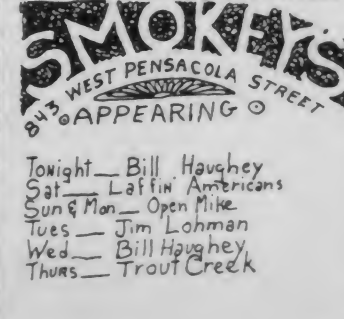 SMOKEY'S
843 WEST PENSACOLA STREET
APPEARING
Tonight__ Bill Haughey
Sat__ Laffin' Americans
Sun & Mon__ Open Mike
Tues__ Jim Lohman
Wed__ Bill Haughey
Thurs__ Trout Creek